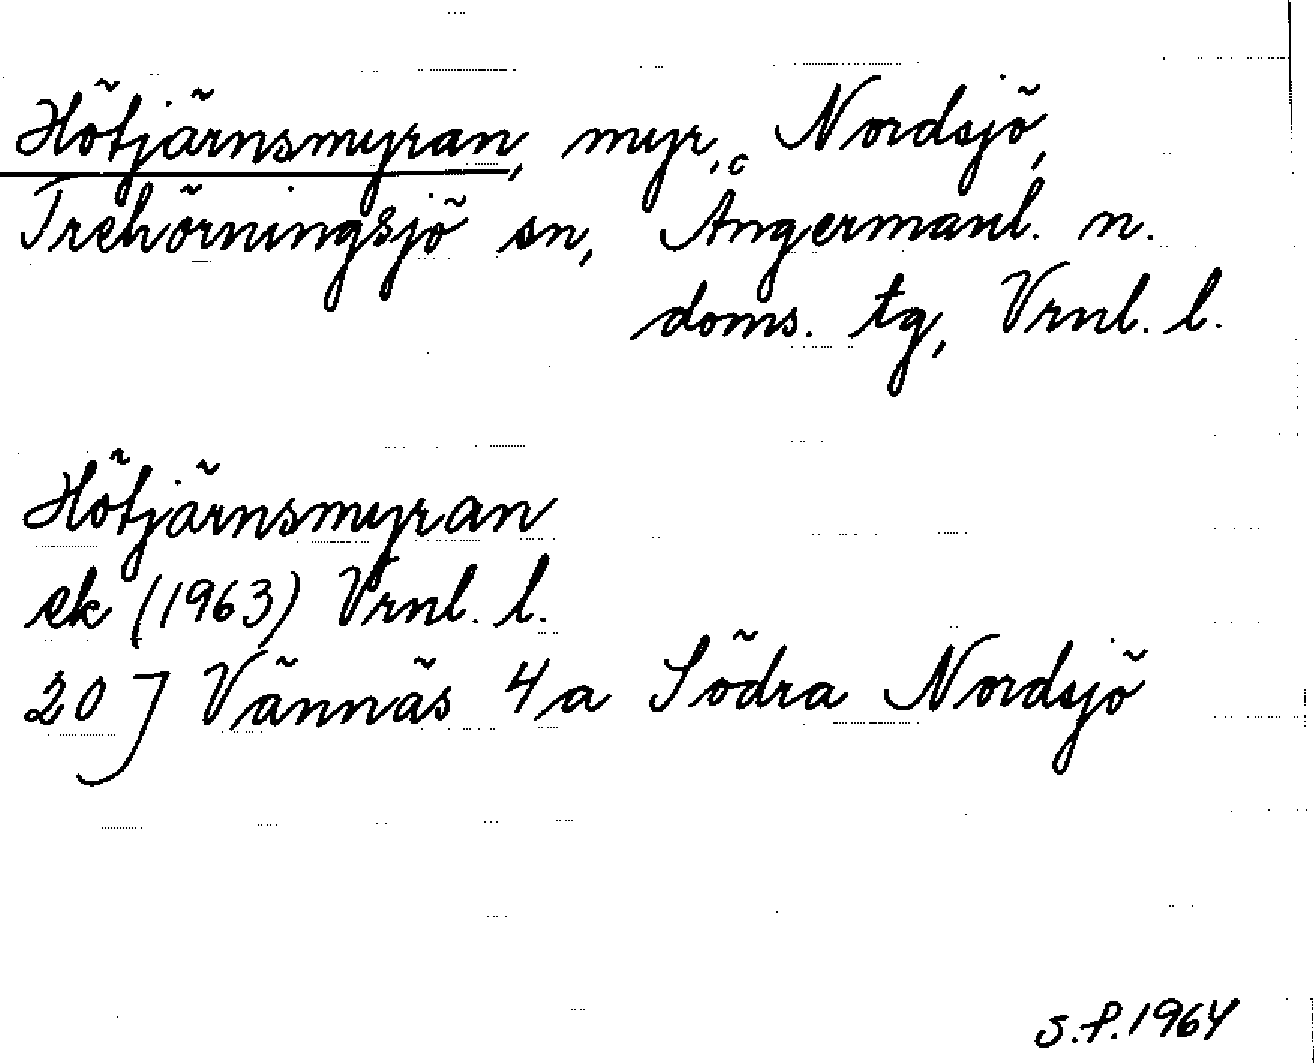 Hötjärnsmyran, myr, Nordsjö,
Trehörningsjö sn, Ångermanl. n.
doms. tg, Vrnl. l.
Hötjärnsmyran
ek (1963) Vrnl. l.
20 J Vännäs 4a Södra Nordsjö
S.P. 1964